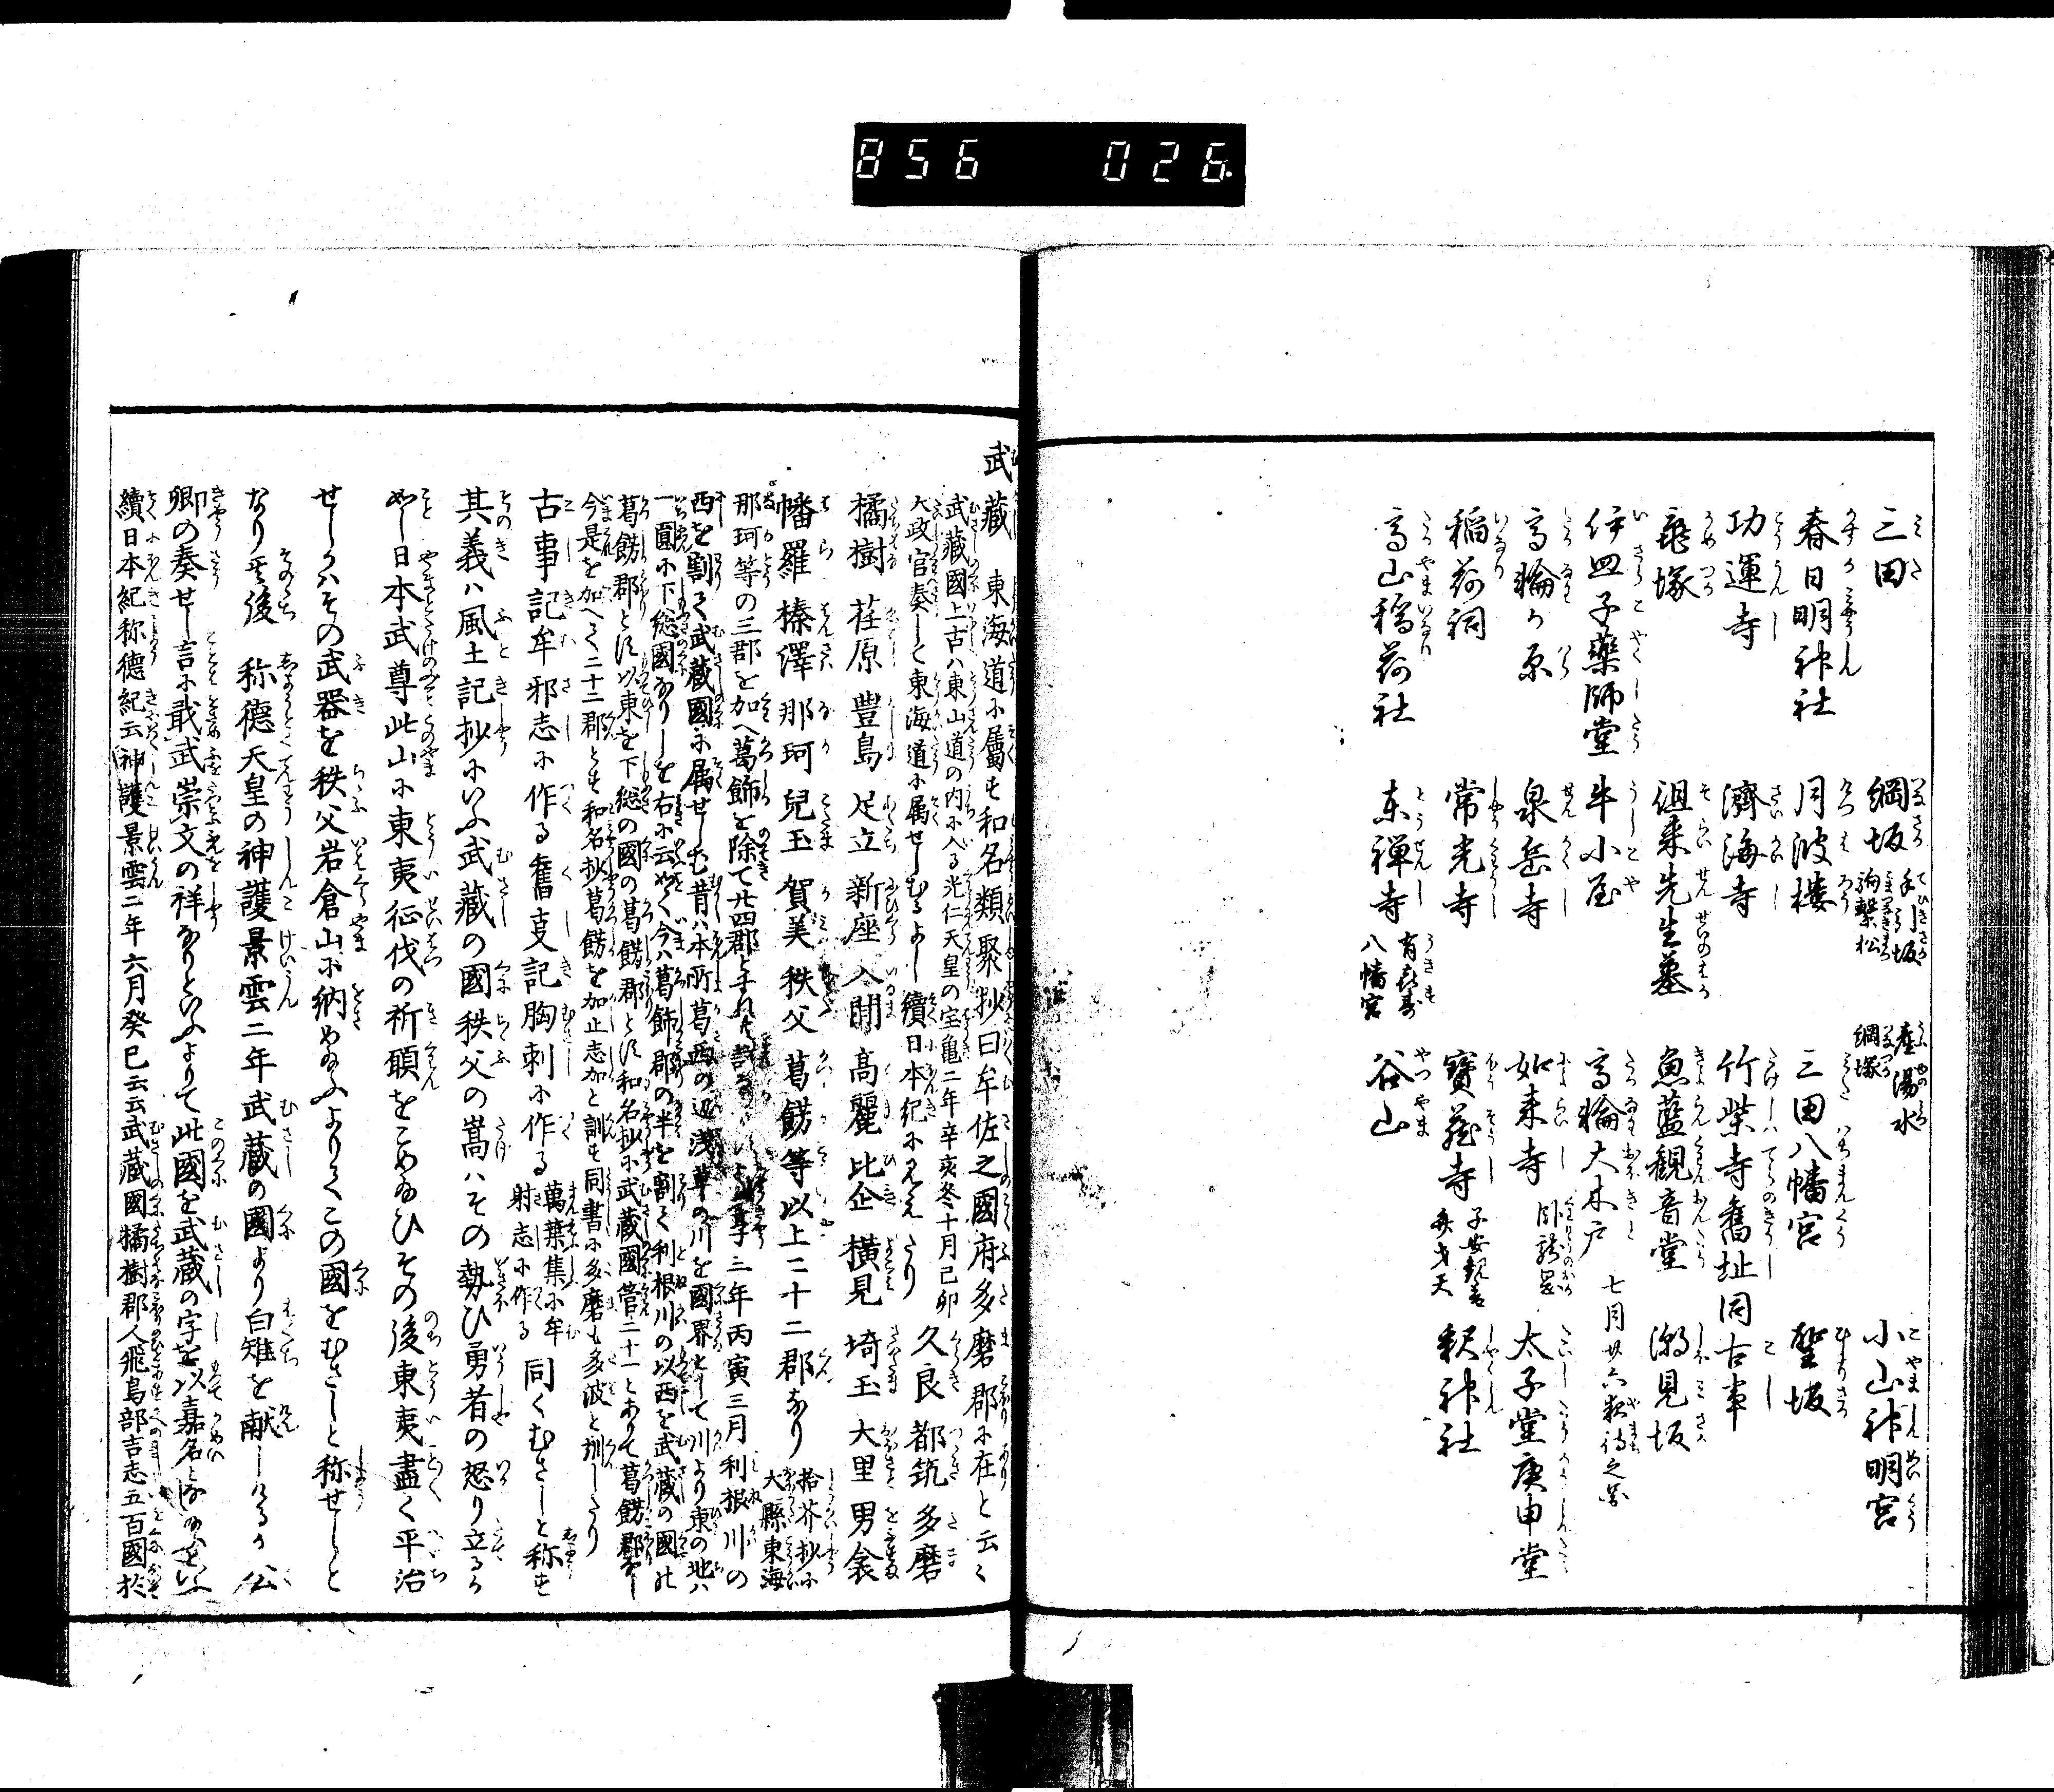 856 026
三田 綱坂 手引坂 駒繋松 産湯水 綱塚 小山神明宮
春日明神社 月波楼 三田八幡宮 聖坂
功運寺 濟海寺 竹柴寺舊址 同古事
亀塚 徂来先生墓 魚藍観音堂 潮見坂
伊皿子薬師堂 牛小屋 高輪大木戸 七月廿六夜待之圖
高輪か原 泉岳寺 如来寺 太子堂 庚申堂
稲荷祠 常光寺 寶蔵寺 子安観音 弁才天 釈神社
高山稲荷社 東禅寺 有喜寿 八幡宮 谷山
武藏 東海道に屬す和名類聚抄曰牟佐之國府多磨郡に在と云々
武藏國上古ハ東山道の内に入る光仁天皇の宝亀二年辛亥冬十月己卯
大政官奏して東海道に属せしむるよし續日本紀に見えたり 久良 都筑 多磨
橘樹 荏原 豊島 足立 新座 入間 高麗 比企 横見 埼玉 大里 男衾
幡羅 榛澤 那珂 兒玉 賀美 秩父 葛餝等以上二十二郡なり 拾芥抄に大縣東海
那珂等の三郡を加へ葛飾を除て廿四郡と 三年丙寅三月利根川の
西を割て武蔵國に属せしむ昔ハ本所葛西の辺浅草の川を國界として川より東の地ハ
一圓に下総國なりしを右に云如く今ハ葛飾郡の半を割て利根川の以西を武蔵の國に
葛餝郡とし以東を下総の國の葛餝郡とす和名抄に武蔵國管二十一とありて葛餝郡なし
今是を加へて二十二郡とす和名抄葛餝を加止志加と訓す同書に多磨も多波と訓したり
古事記牟邪志に作る舊叓記胸刺に作る 萬葉集に牟射志に作る 同くむさしと称す
其義ハ風土記抄にいふ武蔵の國秩父の嵩ハその勢ひ勇者の怒り立るか
如し日本武尊此山に東夷征伐の祈願をこめ給ひその後東夷盡く平治
せしかハその武器を秩父岩倉山に納め給ふよりてこの國をむさしと称せしと
なり其後 称徳天皇の神護景雲二年武蔵の國より白雉を献しけるか公
卿の奏せし言に戢武崇文の祥なりといふよりて此國を武蔵の字を以嘉名と
續日本紀称徳紀云神護景雲二年六月癸巳云云武藏國橘樹郡人飛鳥部吉志五百國於